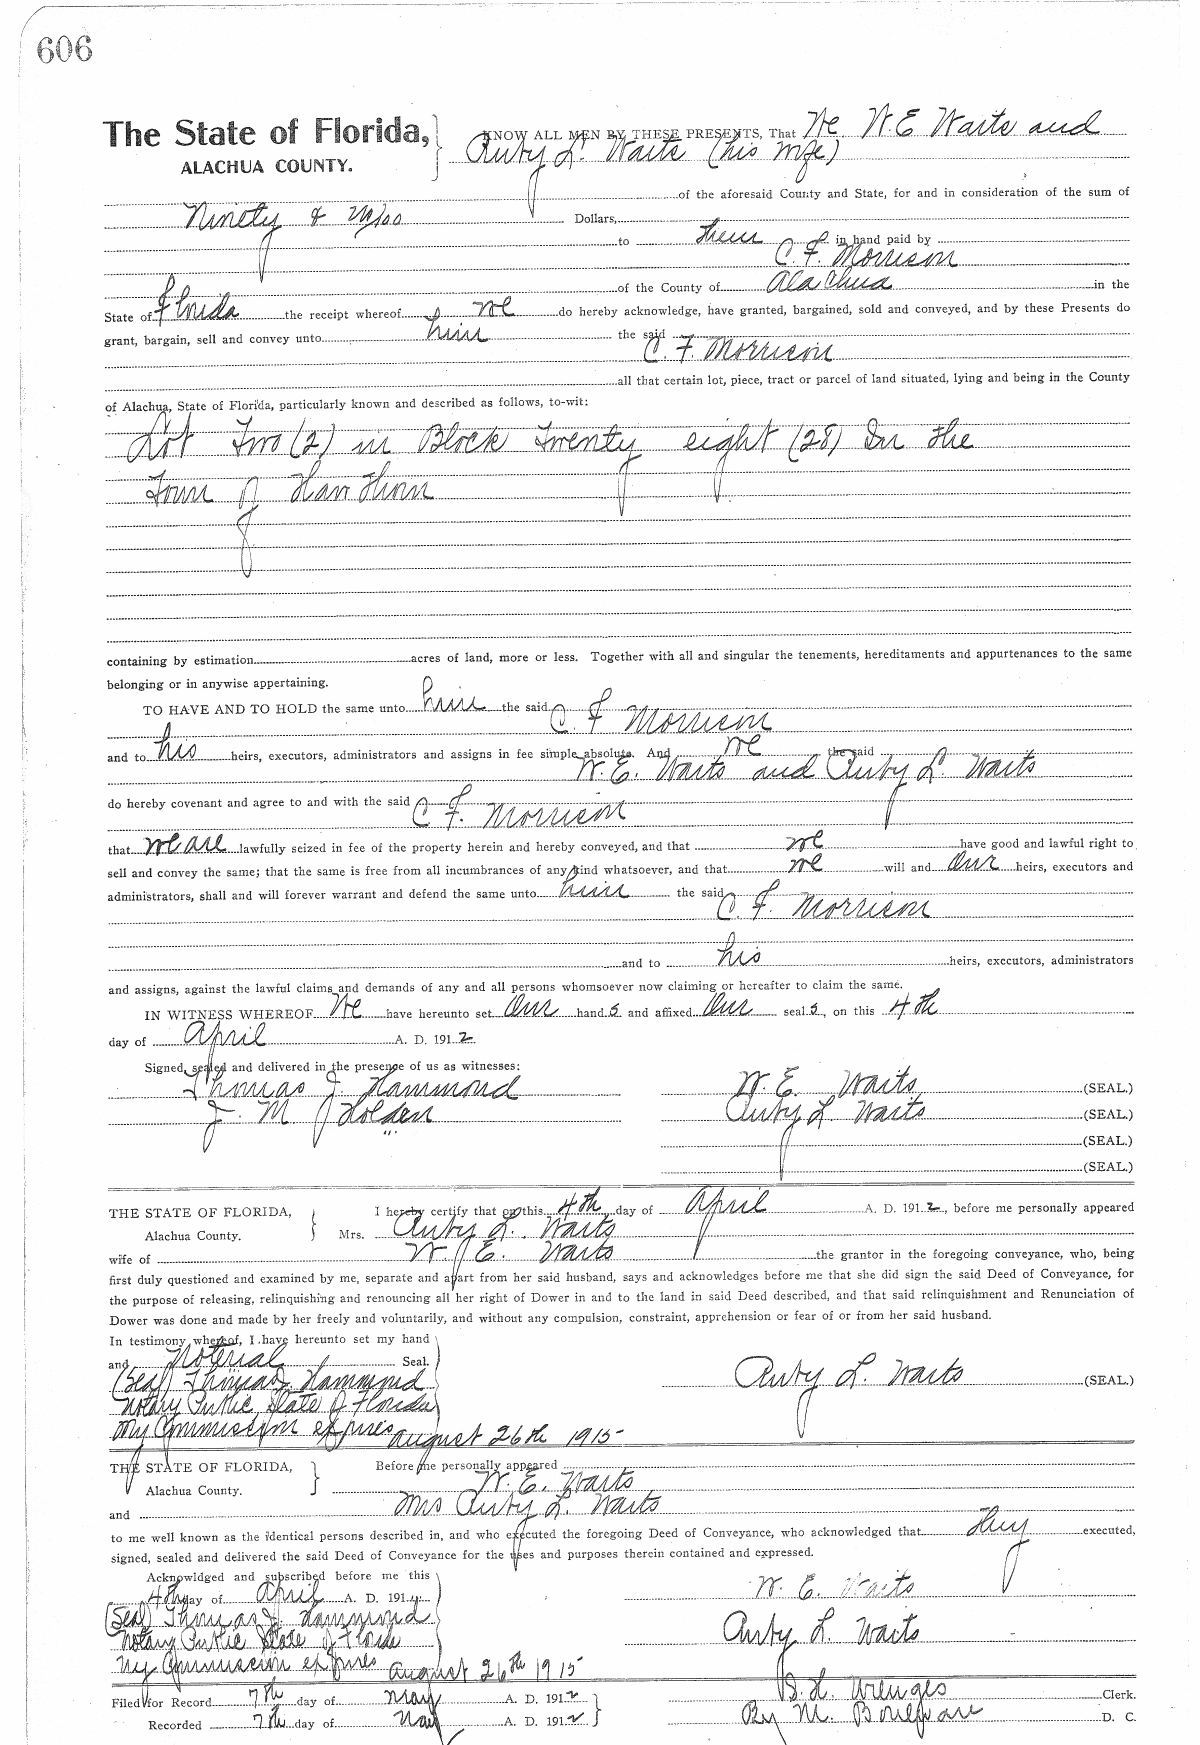 606
The State of Florida, KNOW ALL MEN BY THESE PRESENTS, That We W. E Waits and
ALACHUA COUNTY. Ruby L. Waits (his wife)
of the aforesaid County and State, for and in consideration of the sum of
Ninety & no/100 Dollars,
to them in hand paid by
C. F. Morrison
of the County of Alachua in the
State of Florida the receipt whereof we do hereby acknowledge, have granted, bargained, sold and conveyed, and by these Presents do
grant, bargain, sell and convey unto him the said
C. F. Morrison
all that certain lot, piece, tract or parcel of land situated, lying and being in the County
of Alachua, State of Florida, particularly known and described as follows, to-wit:
Lot Two (2) in Block Twenty eight (28) In the
Town of Hawthorn
containing by estimation acres of land, more or less. Together with all and singular the tenements, hereditaments and appurtenances to the same
belonging or in anywise appertaining.
TO HAVE AND TO HOLD the same unto him the said C F Morrison
and to his heirs, executors, administrators and assigns in fee simple absolute. And we the said
W. E. Waits and Ruby L. Waits
do hereby covenant and agree to and with the said C F. Morrison
that we are lawfully seized in fee of the property herein and hereby conveyed, and that we have good and lawful right to
sell and convey the same; that the same is free from all incumbrances of any kind whatsoever, and that we will and our heirs, executors and
administrators, shall and will forever warrant and defend the same unto him the said C. F. Morrison
and to his heirs, executors, administrators
and assigns, against the lawful claims and demands of any and all persons whomsoever now claiming or hereafter to claim the same.
IN WITNESS WHEREOF We have hereunto set Our hand s and affixed Our seal s, on this 4th
day of April A. D. 191 2
Signed, sealed and delivered in the presence of us as witnesses:
Thomas J. Hammond W. E. Waits (SEAL.)
J. M Holden Ruby L Waits (SEAL.)
(SEAL.)
(SEAL.)
THE STATE OF FLORIDA, I hereby certify that on this 4th day of April A. D. 191 2, before me personally appeared
Alachua County. Mrs. Ruby L. Waits
wife of W. E. Waits the grantor in the foregoing conveyance, who, being
first duly questioned and examined by me, separate and apart from her said husband, says and acknowledges before me that she did sign the said Deed of Conveyance, for
the purpose of releasing, relinquishing and renouncing all her right of Dower in and to the land in said Deed described, and that said relinquishment and Renunciation of
Dower was done and made by her freely and voluntarily, and without any compulsion, constraint, apprehension or fear of or from her said husband.
In testimony whereof, I have hereunto set my hand
and Noterial Seal.
(Seal) Thomas J. Hammond Ruby L. Waits (SEAL.)
Notary Public State of Florida
My Commission expires August 26th 1915
THE STATE OF FLORIDA, Before me personally appeared
Alachua County. W. E. Waits
and Mrs Ruby L. Waits
to me well known as the identical persons described in, and who executed the foregoing Deed of Conveyance, who acknowledged that they executed,
signed, sealed and delivered the said Deed of Conveyance for the uses and purposes therein contained and expressed.
Acknowldged and subscribed before me this
4th day of April A. D. 191 W. E. Waits
(Seal) Thomas J. Hammond
Notary Public State of Florida Ruby L. Waits
My Commission expires August 26th 1915
Filed for Record 7th day of May A. D. 191 2 Clerk.
Recorded 7th day of May A. D. 191 2 By M. D. C.